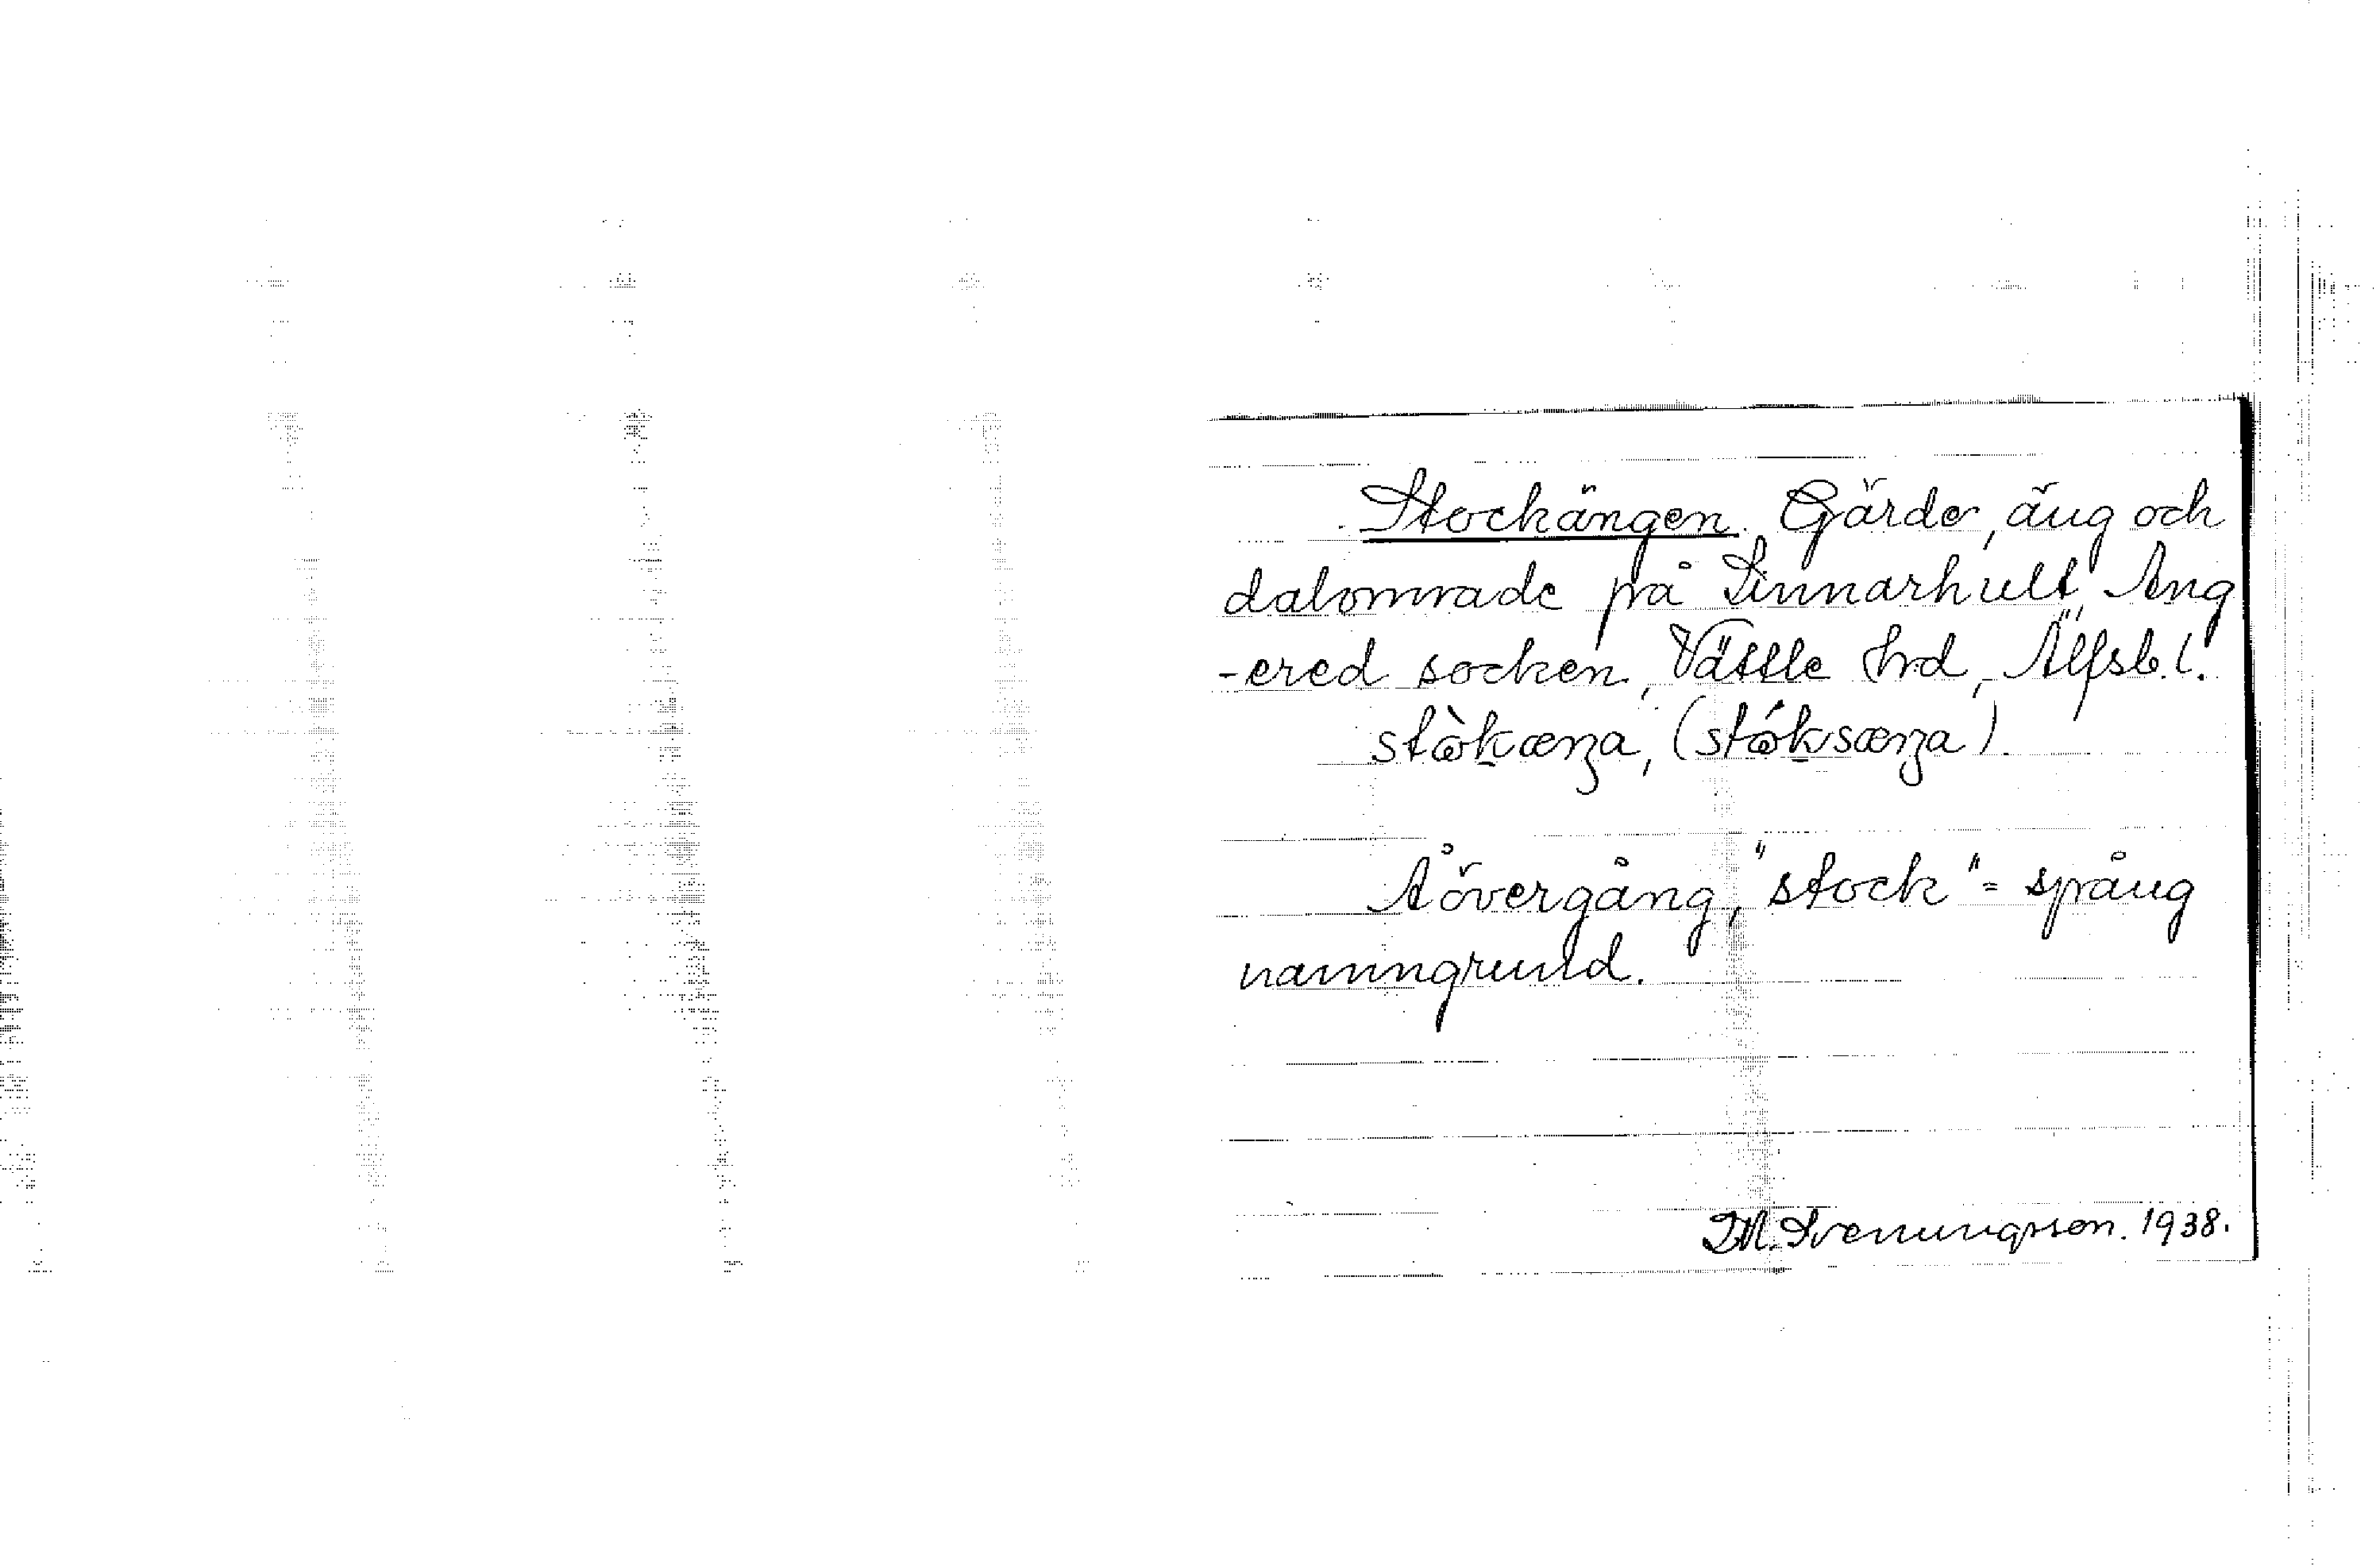 Stockängen. Gärde, äng och
dalområde på Linnarhult, Ang
-ered socken, Vättle hrd, Älfsb. l.
stȯ̀kæŋa, (stȯ́ksæŋa).
Åövergång, "stock" = spång
namngrund.
I M. Svenungsson. 1938.